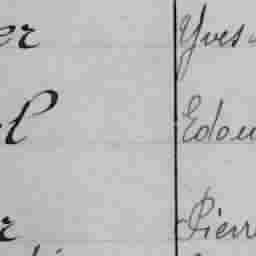 er Yves
el Edou
r Pierr